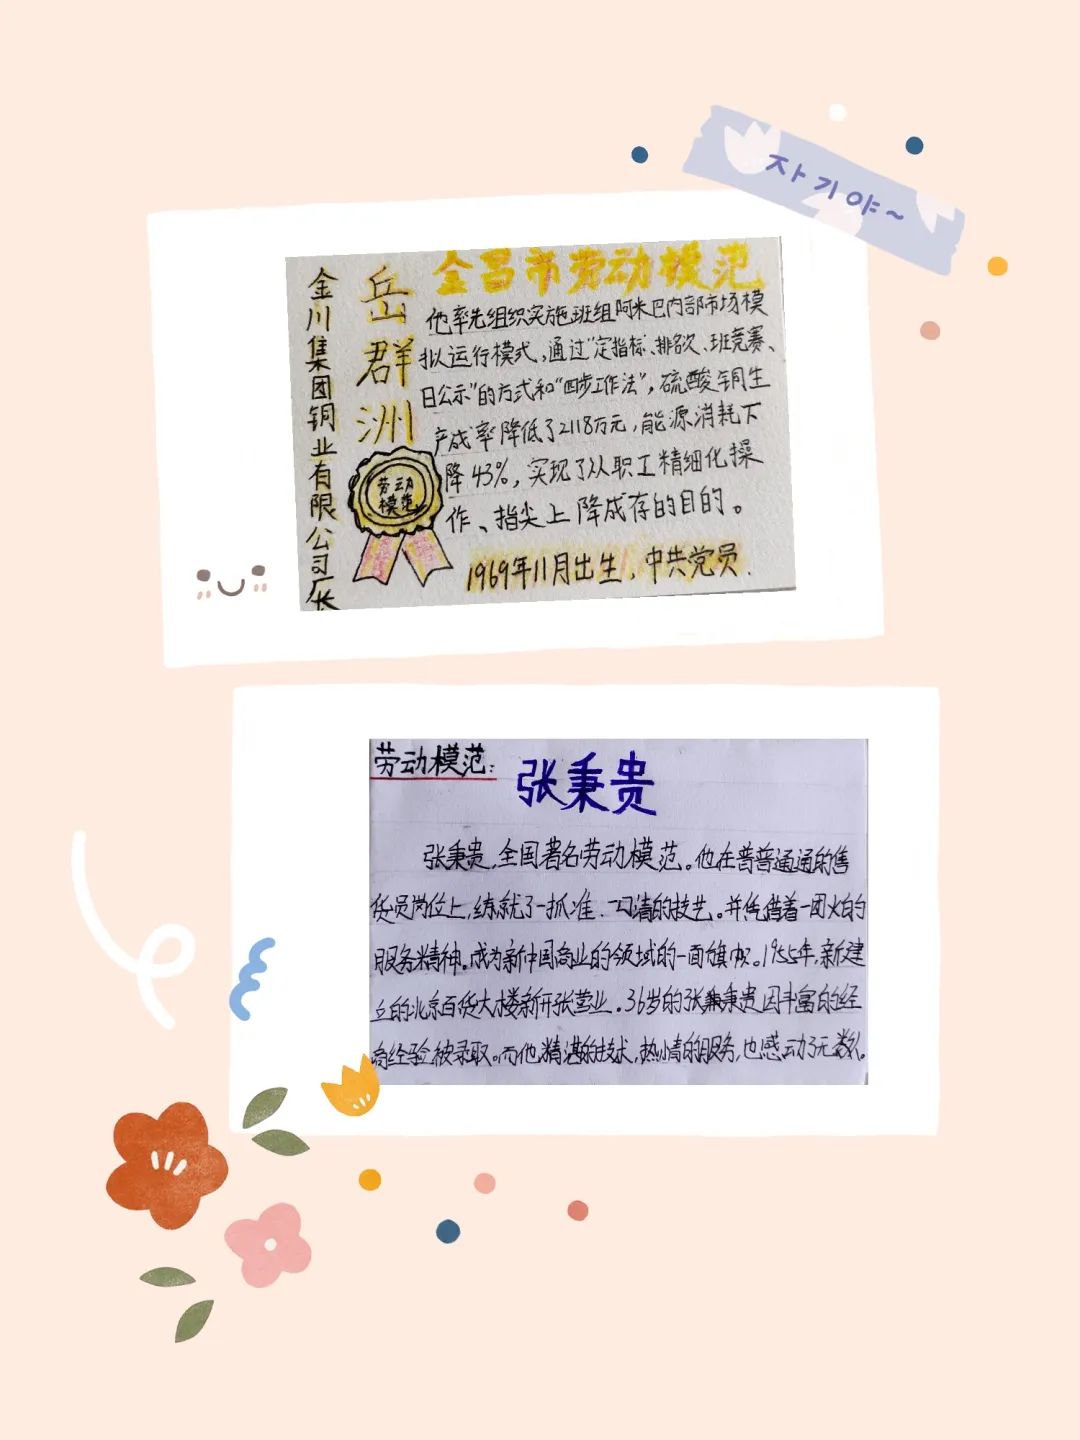 자기야~
金昌市劳动模范
金川集团铜业有限公司厂长
岳群洲
劳动
模范
他率先组织实施班组阿米巴内部市场模
拟运行模式,通过“定指标、排名次、班竞赛、
日公示”的方式和“四步工作法”,硫酸铜生
产成率降低了2118万元,能源消耗下
降43%,实现了从职工精细化操
作、指尖上降成存的目的。
1969年11月出生,中共党员.
劳动模范:
张秉贵
张秉贵,全国著名劳动模范。他在普普通通的售
货员岗位上,练就了一抓准、一口清的技艺。并凭借着一团火的
服务精神。成为新中国商业的领域的一面旗帜。1955年,新建
立的北京百货大楼新开张营业.36岁的张秉贵因丰富的经
商经验被录取。而他精湛的技术,热情的服务,也感动了无数人。